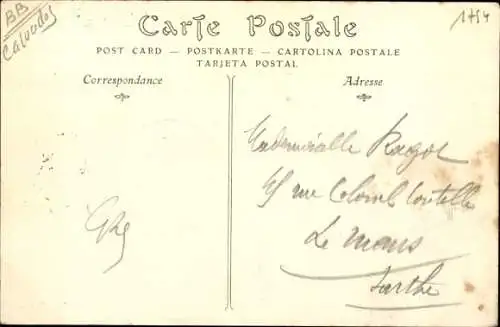 BB
Calvados
1454
Carte Postale
POST CARD — POSTKARTE — CARTOLINA POSTALE
TARJETA POSTAL
Correspondance
Adresse
Mademoiselle Ragot
rue Colomb
Le Mans
Sarthe